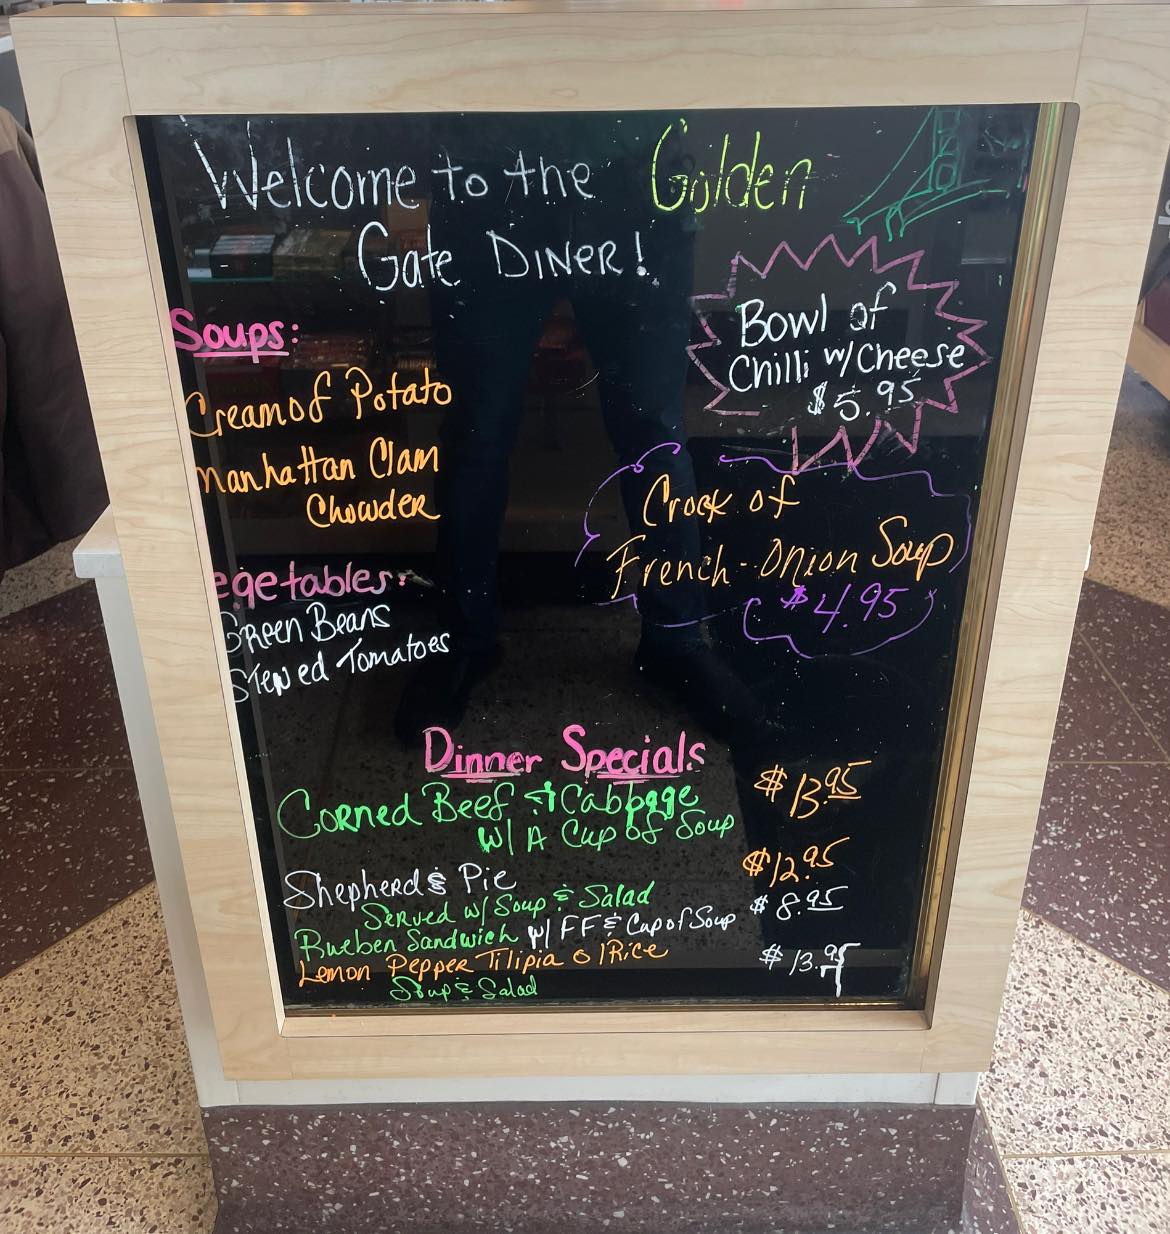 Welcome to the Golden
Gate DINER!
Soups:
Cream of Potato
Manhattan Clam
Chowder
egetables:
Green Beans
Stewed Tomatoes
Bowl of
Chilli w/ Cheese
$5.95
Crock of
French-Onion Soup
$4.95
Dinner Specials
Corned Beef & Cabbage $13.95
W/ A Cup of Soup
Shepherd's Pie $12.95
Served w/ Soup & Salad
Rueben Sandwich w/ FF & Cup of Soup $8.95
Lemon Pepper Tilipia o/Rice $13.95
Soup & Salad